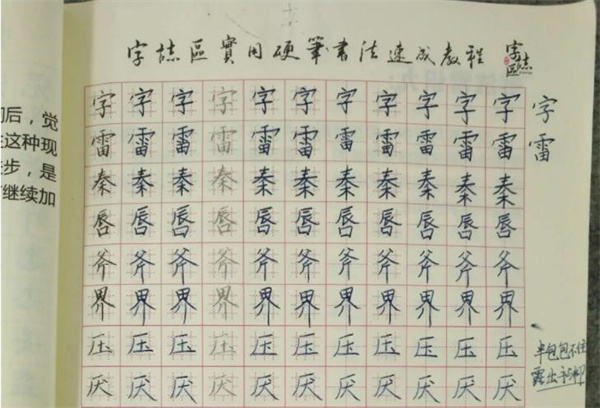 字誌區實用硬筆書法速成教程
字誌區
字字字字字字字字字字字 字
雷雷雷雷雷雷雷雷雷雷雷 雷
秦秦秦秦秦秦秦秦秦秦秦
唇唇唇唇唇唇唇唇唇唇唇
斧斧斧斧斧斧斧斧斧斧斧
界界界界界界界界界界界
压压压压压压压压压压压
厌厌厌厌厌厌厌厌厌厌厌
后，觉
这种现
步，是
继续加
半包包不住
露出